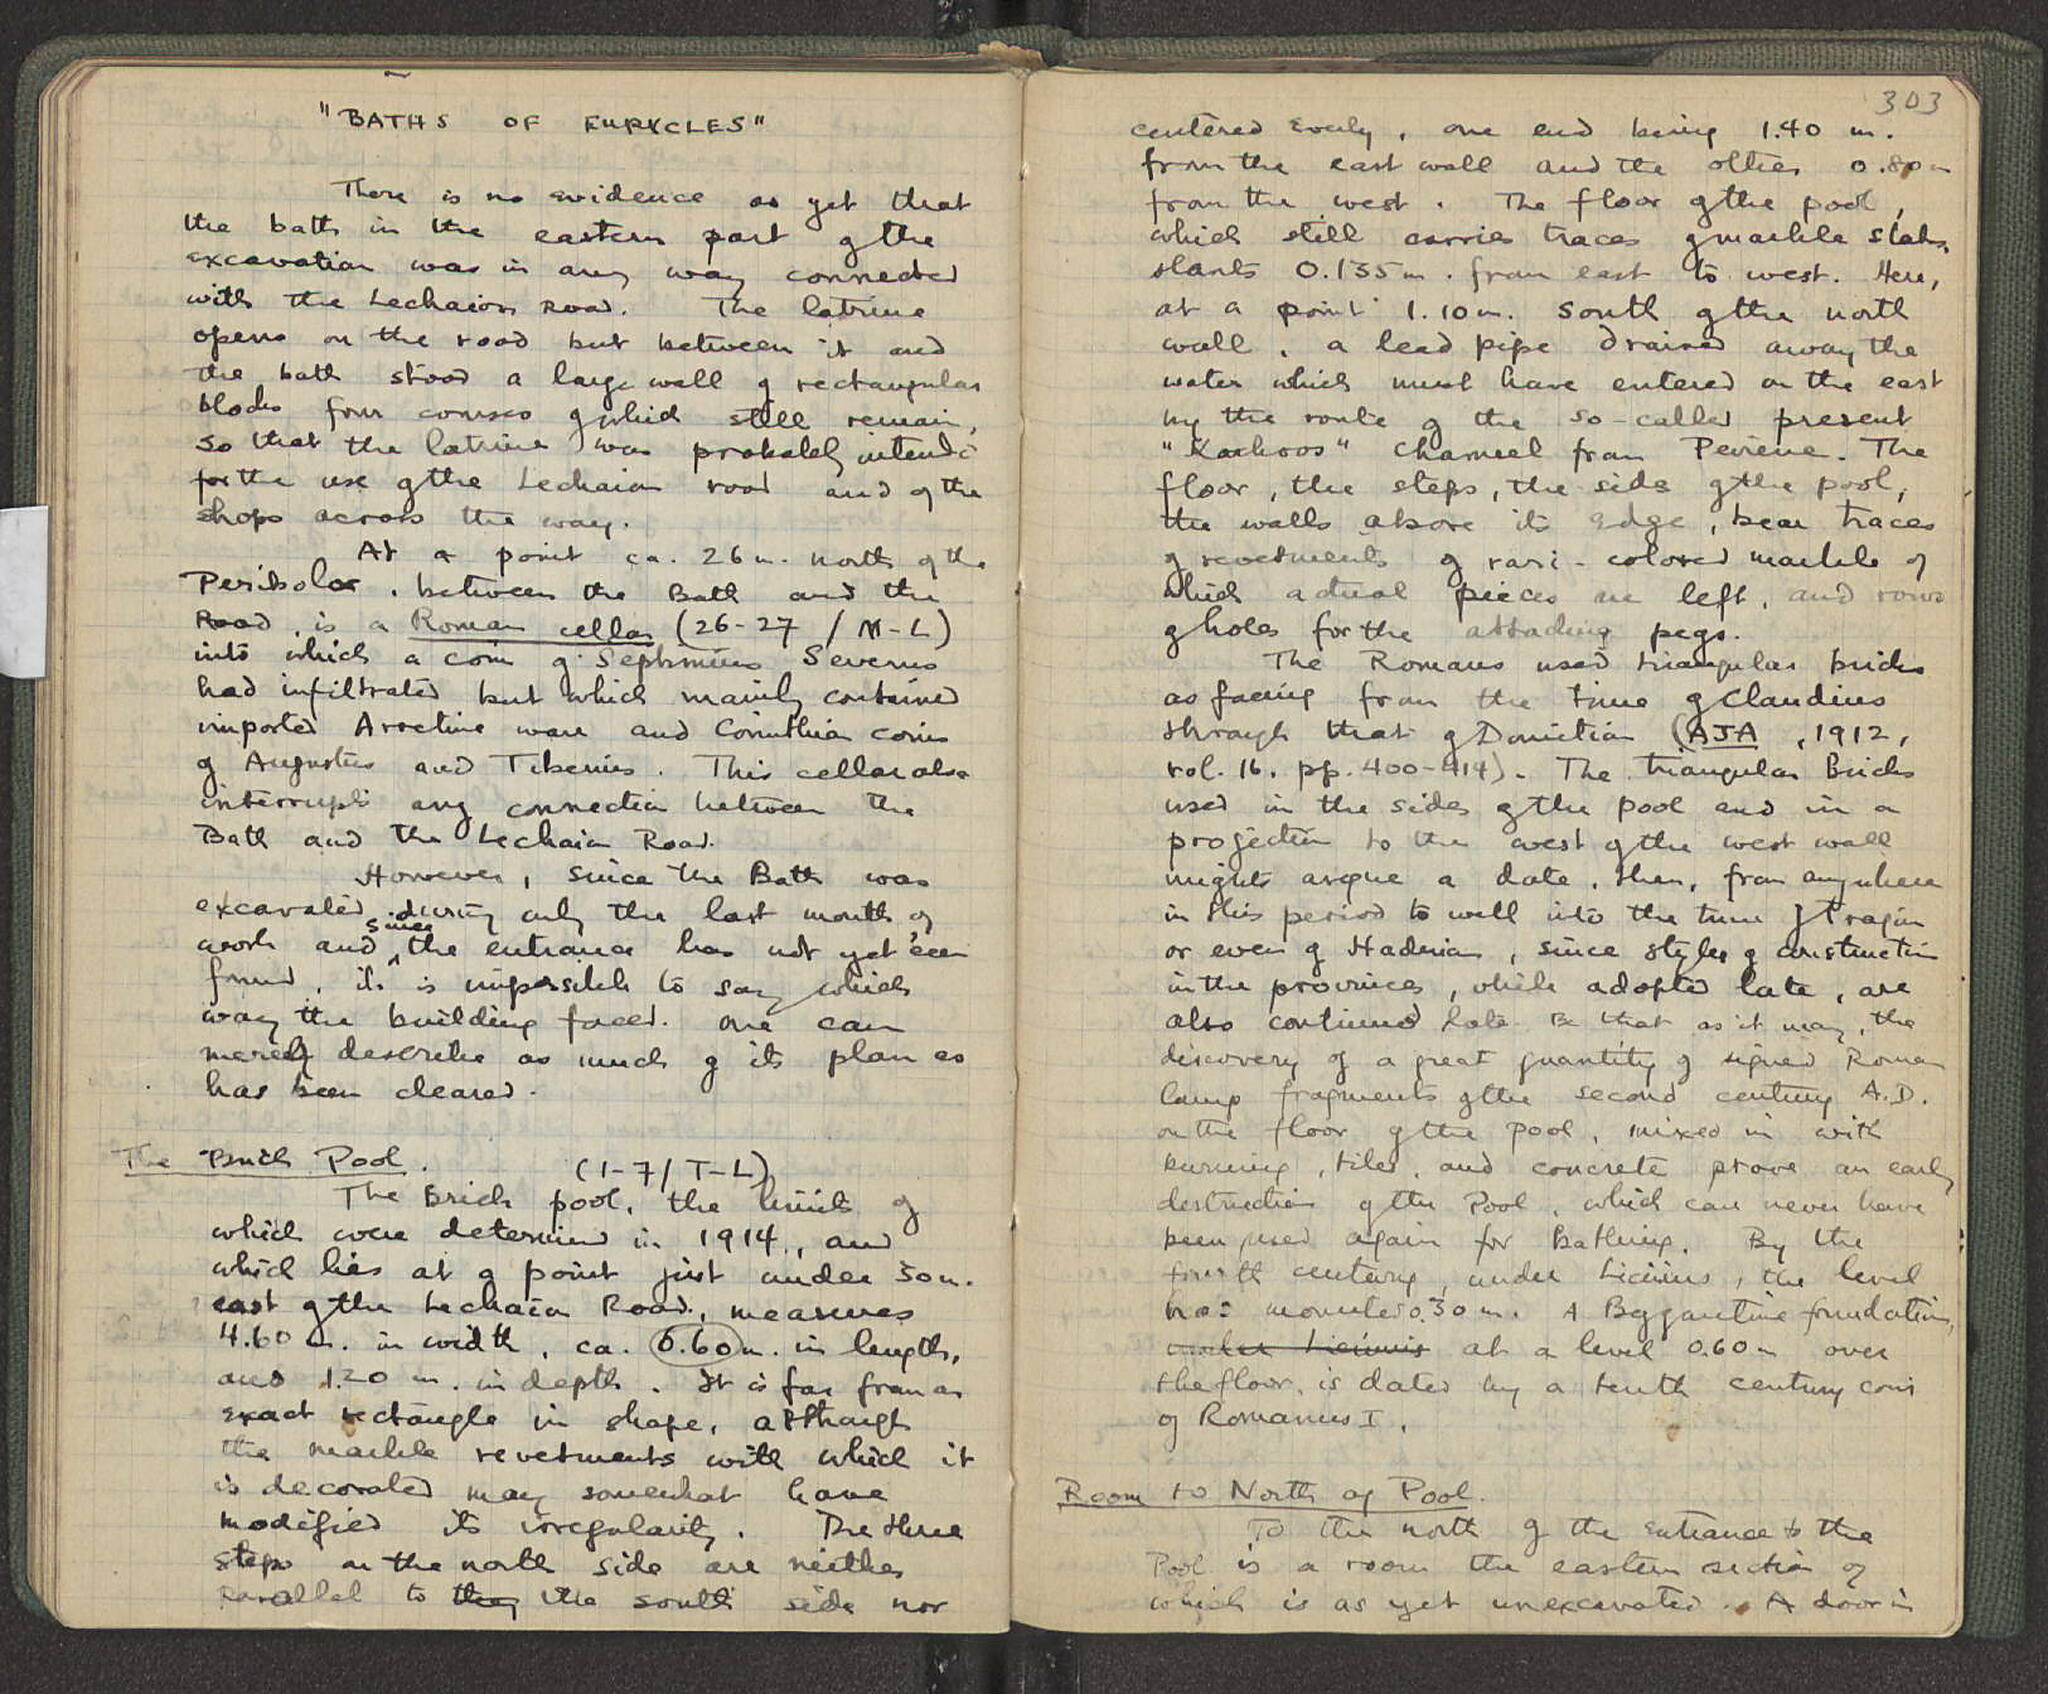 "BATHS OF EURYCLES"
There is no evidence as yet that
the bath in the eastern part of the
excavation was in any way connected
with the Lechaion Road. The latrine
opens on the road but between it and
the bath stood a large wall of rectangular
blocks four courses of which still remain,
so that the latrine was probably intended
for the use of the Lechaion road and of the
shops across the way.
At a point ca. 26 m. north of the
Peribolos, between the Bath and the
Road, is a Roman cellar (26-27 / M-L)
into which a coin of Septimius Severus
had infiltrated but which mainly contained
imported Arretine ware and Corinthian coins
of Augustus and Tiberius. This cellar also
interrupts any connection between the
Bath and the Lechaion Road.
However, since the Bath was
excavated during only the last month of
work and since the entrance has not yet been
found, it is impossible to say which
way the building faced. One can
merely describe as much of its plan as
has been cleared.
The Brick Pool. (1-7/ T-L)
The Brick pool, the limits of
which were determined in 1914, and
which lies at a point just under 50 m.
east of the Lechaion Road, measures
4.60 m. in width, ca. 6.60 m. in length,
and 1.20 m. in depth. It is far from an
exact rectangle in shape, although
the marble revetments with which it
is decorated may somewhat have
modified its irregularity. The three
steps on the north side are neither
parallel to they the south side nor
303
centered evenly, one end being 1.40 m.
from the east wall and the other 0.80 m
from the west. The floor of the pool,
which still carries traces of marble slabs,
slants 0.135 m. from east to west. Here,
at a point 1.10 m. south of the north
wall, a lead pipe drained away the
water which must have entered on the east
by the route of the so-called present
"Kachoos" channel from Peirene. The
floor, the steps, the sides of the pool,
the walls above its edge, bear traces
of revetments of vari-colored marble of
which actual pieces are left, and rows
of holes for the attaching pegs.
The Romans used triangular bricks
as facing from the time of Claudius
through that of Domitian (AJA, 1912,
vol. 16, pp. 400-414). The triangular Bricks
used in the sides of the pool and in a
projection to the west of the west wall
might argue a date, then, from anywhere
in this period to well into the time of Trajan
or even of Hadrian, since styles of construction
in the provinces, while adopted late, are
also continued late. Be that as it may, the
discovery of a great quantity of signed Roman
lamp fragments of the second century A.D.
on the floor of the pool, mixed in with
burning, tiles, and concrete prove an early
destruction of the Pool, which can never have
been used again for Bathing. By the
fourth century, under Licinius, the level
has mounted 0.30 m. A Byzantine foundation,
under Licinius at a level 0.60 m over
the floor, is dated by a tenth century coin
of Romanus I.
Room to North of Pool.
To the north of the entrance to the
Pool is a room the eastern section of
which is as yet unexcavated. A door in